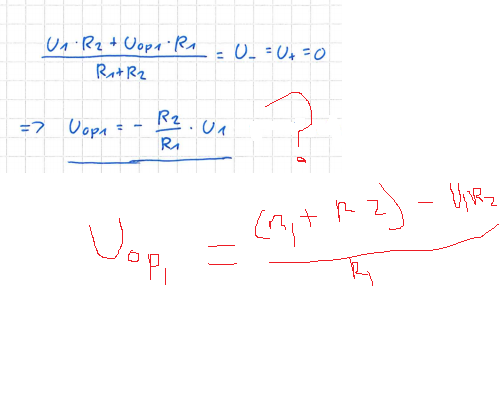 (U1·R2 + Uop1·R1)/(R1+R2) = U- = U+ = 0
=> Uop1 = - R2/R1 · U1 ?
Uop1 = ((R1 + R2) - U1R2)/R1